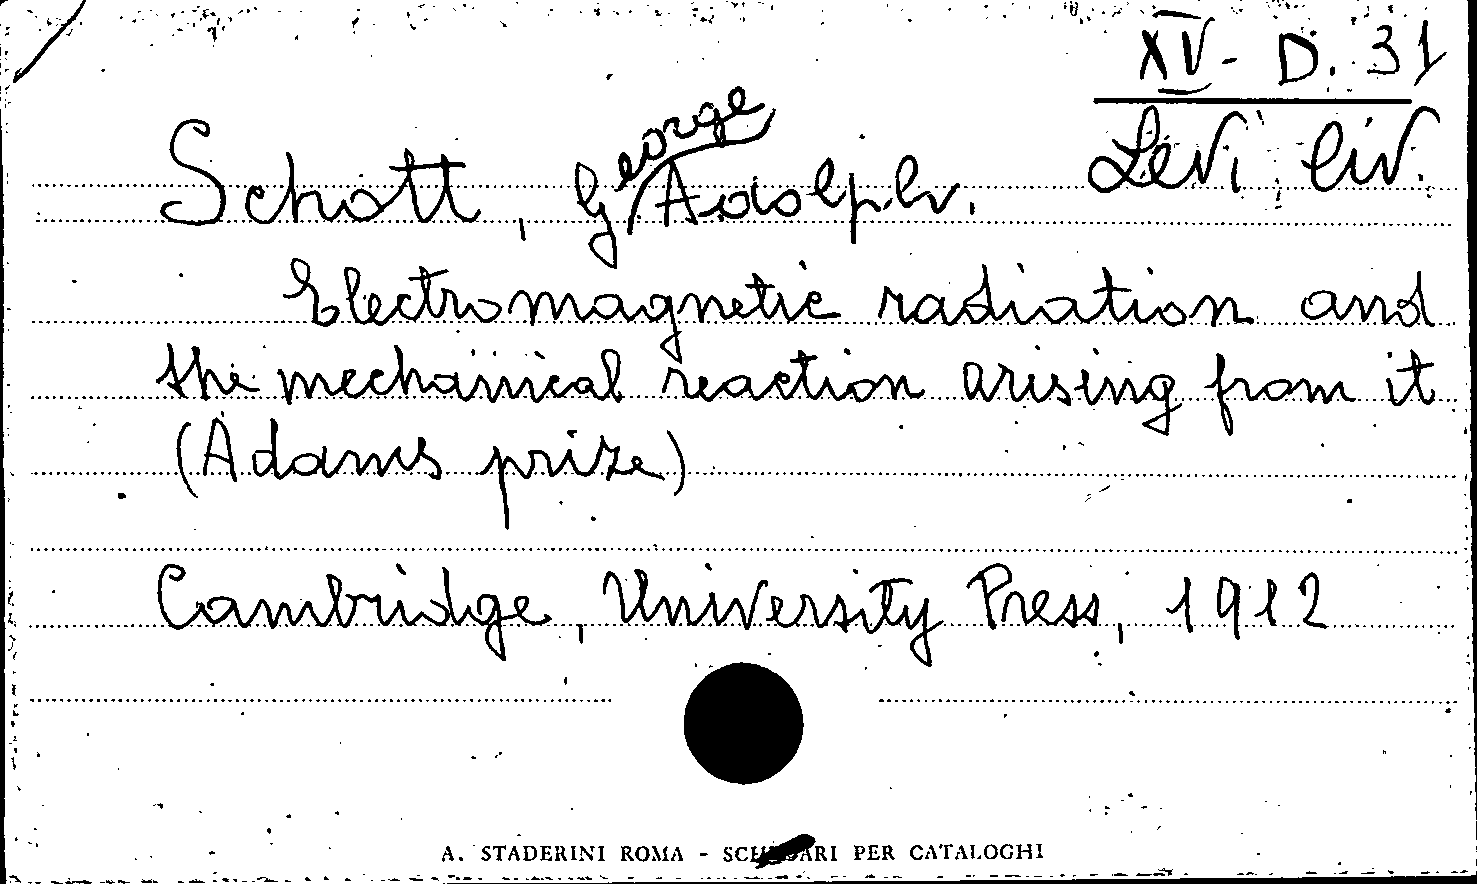 XV - D. 31
Levi Civ.
Schott, George Adolph.
Electromagnetic radiation and
the mechanical reaction arising from it
(Adams prize)
Cambridge, University Press, 1912
A. STADERINI ROMA - SCHEDARI PER CATALOGHI